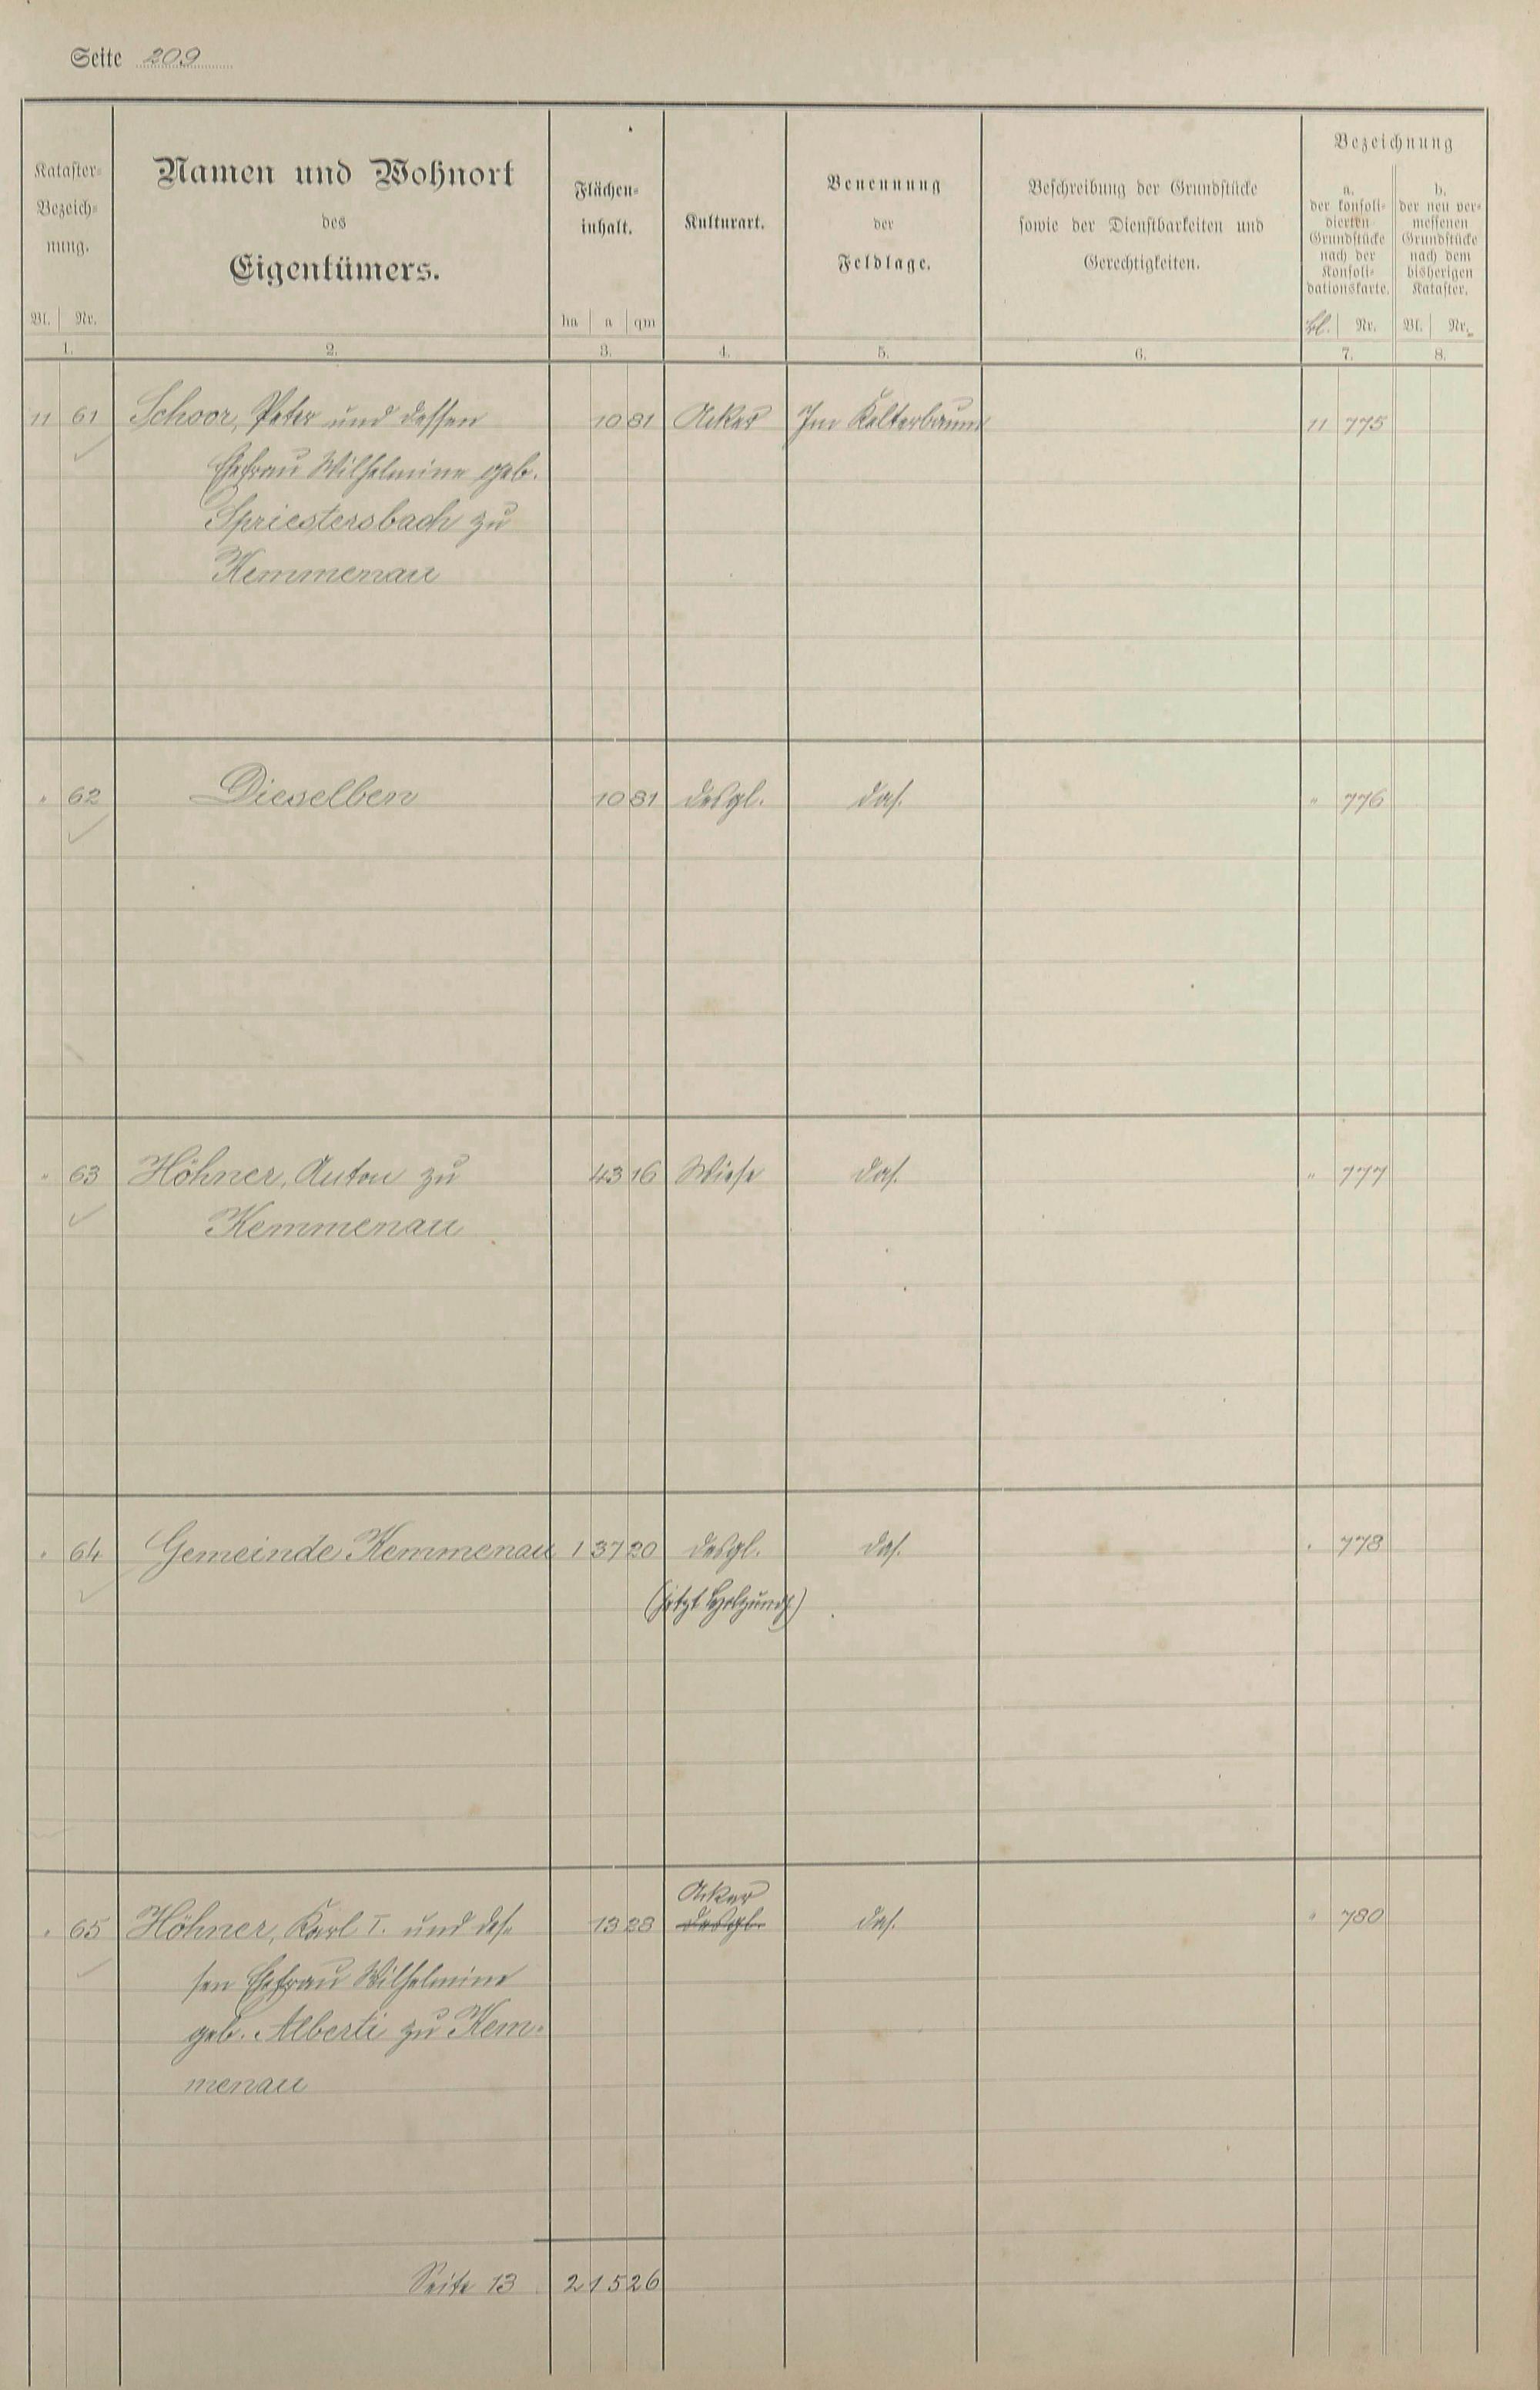 Seite 209
Kataster-
Bezeich-
nung.
Bl. Nr.
1.
Namen und Wohnort
des
Eigentümers.
2.
Flächen-
inhalt.
ha a qm
3.
Kulturart.
4.
Benennung
der
Feldlage.
5.
Beschreibung der Grundstücke
sowie der Dienstbarkeiten und
Gerechtigkeiten.
6.
Bezeichnung
a.
der konsoli-
dierten
Grundstücke
nach der
Konsoli-
dationskarte.
Bl. Nr.
7.
b.
der neu ver-
messenen
Grundstücke
nach dem
bisherigen
Kataster.
Bl. Nr.
8.
11 61 Schoor, Peter und dessen 10 81 Acker Im Kelterbaum 11 775
Ehefrau Wilhelmine geb.
Spriestersbach zu
Kemmenau
" 62 Dieselben 10 81 desgl. das. " 776
" 63 Höhner, Anton zu 43 16 Wiese das. " 777
Kemmenau
" 64 Gemeinde Kemmenau 1 37 20 desgl. das. " 778
(jetzt Holzung)
Acker
" 65 Höhner, Karl I. und des- 13 28 desgl. das. " 780
sen Ehefrau Wilhelmine
geb. Alberti zu Kem-
menau
Seite 13 2 15 26